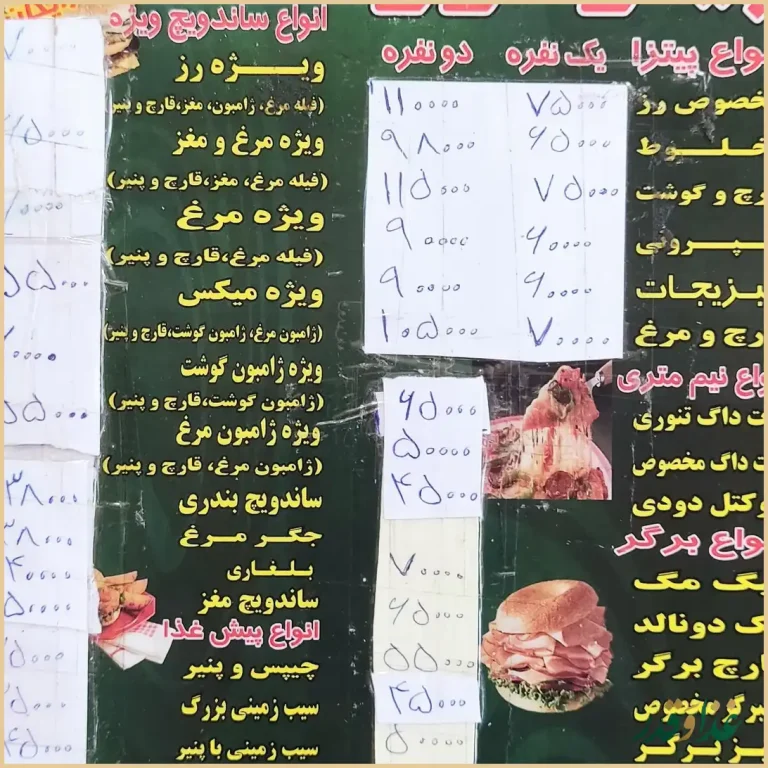 انواع پیتزا یک نفره دو نفره
مخصوص رز ۷۵۰۰۰ ۱۱۰۰۰۰
مخلوط ۶۵۰۰۰ ۹۸۰۰۰
قارچ و گوشت ۷۵۰۰۰ ۱۱۵۰۰۰
پپرونی ۶۰۰۰۰ ۹۰۰۰۰
سبزیجات ۶۰۰۰۰ ۹۰۰۰۰
قارچ و مرغ ۷۰۰۰۰ ۱۰۵۰۰۰
انواع نیم متری
هات داگ تنوری ۶۵۰۰۰
هات داگ مخصوص ۵۰۰۰۰
کوکتل دودی ۴۵۰۰۰
انواع برگر
بیگ مگ ۷۰۰۰۰
مک دونالد ۶۵۰۰۰
قارچ برگر ۵۵۰۰۰
مخصوص ۴۵۰۰۰
برگر ۵۰۰۰۰
انواع ساندویچ ویژه
ویژه رز
(فیله مرغ، ژامبون، مغز،قارچ وپنیر)
ویژه مرغ و مغز
(فیله مرغ، مغز،قارچ و پنیر)
ویژه مرغ
(فیله مرغ،قارچ و پنیر)
ویژه میکس ۵۵۰۰۰
(ژامبون مرغ، ژامبون گوشت،قارچ و پنیر)
ویژه ژامبون گوشت ۷۰۰۰۰
(ژامبون گوشت،قارچ و پنیر)
ویژه ژامبون مرغ ۵۵۰۰۰
(ژامبون مرغ، قارچ و پنیر)
ساندویچ بندری ۳۸۰۰۰
جگر مرغ ۳۸۰۰۰
بلغاری ۴۰۰۰۰
ساندویچ مغز ۵۰۰۰۰
انواع پیش غذا
چیپس و پنیر
سیب زمینی بزرگ
سیب زمینی با پنیر ۴۵۰۰۰